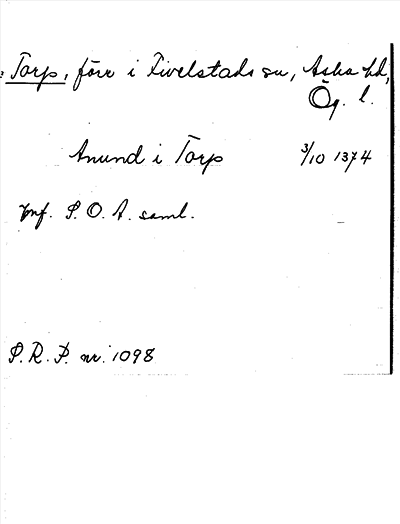 Torp, förr i Fivelstads sn, Aska hd,
Ög. l.
Anund i Torp 3/10 1374
Jmf. S. O. A. saml.
S. R. P. nr. 1098